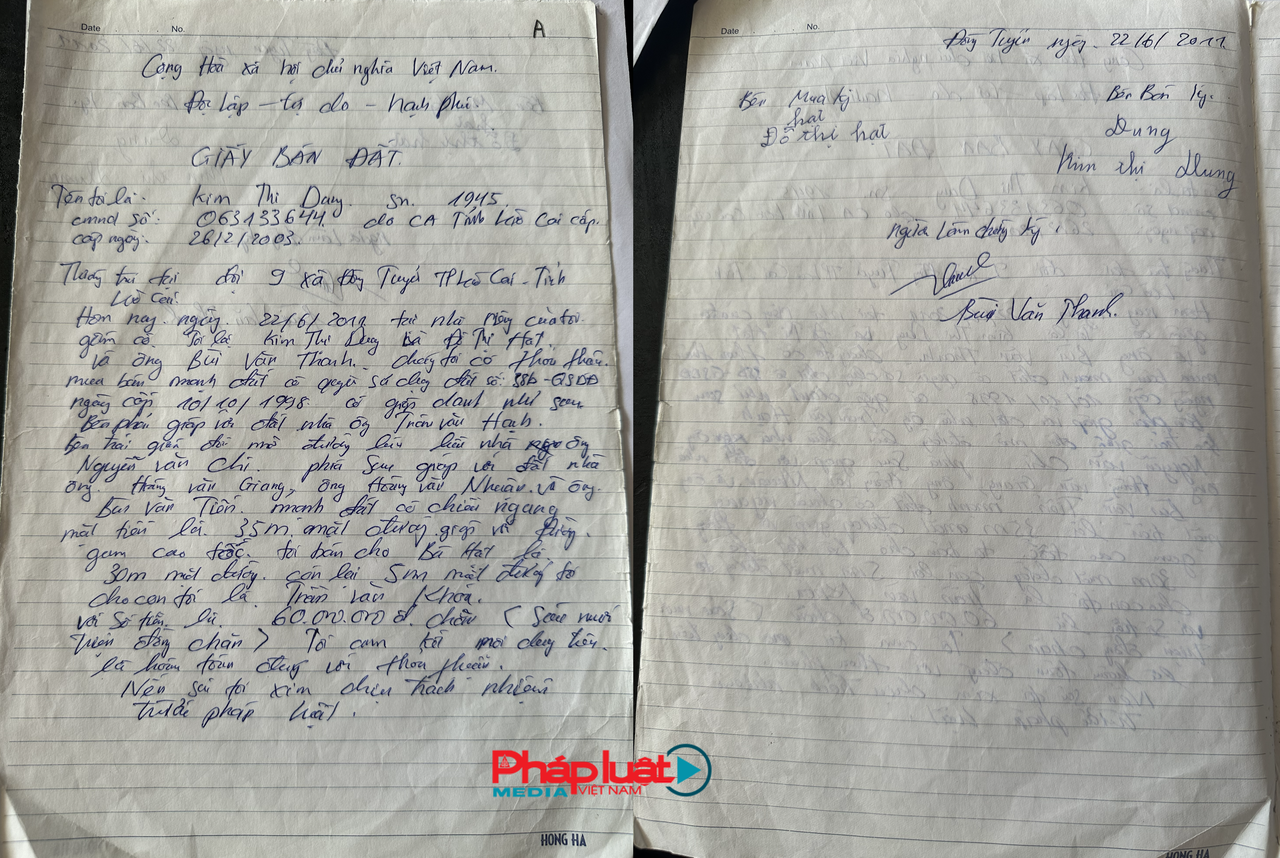 Date No.
A
Cộng Hoà xã hội chủ nghĩa Việt Nam.
Độc Lập - tự do - hạnh phúc
GIẤY BÁN ĐẤT.
Tên tôi là: Kim Thị Dung. sn. 1945.
cmnd số: 063133644. do CA Tỉnh Lào Cai cấp.
cấp ngày: 26/2/2003.
Thường trú tại đội 9 xã Đồng Tuyển TP Lào Cai - Tỉnh
Lào Cai.
Hôm nay. ngày. 22/6/2011 tại nhà riêng của tôi.
gồm có. Tôi là Kim Thị Dung bà Đỗ Thị Hạt.
và ông Bùi Văn Thanh. chúng tôi có thoả thuận.
mua bán mảnh đất có quyền sử dụng đất số: 38b-QSDĐ
ngày cấp 10/10/1998 có giáp danh như sau
Bên phải giáp với đất nhà ông Trần Văn Hạnh.
bên trái giáp đồi mở đường nhà ông
Nguyễn Văn Chi. phía sau giáp với đất nhà
ông. Hoàng Văn Giang, ông Hoàng Văn Nhuận. và ông.
Bùi Văn Tiến. mảnh đất có chiều ngang
mặt tiền là. 35m mặt đường giáp với đường.
gom cao tốc. tôi bán cho Bà Hạt là
30m mặt đường. còn lại 5m mặt đường tôi
cho con tôi là. Trần Văn Khoá.
với số tiền là 60.000.000đ. chẵn (Sáu mươi
triệu đồng chẵn) Tôi cam kết nội dung trên.
là hoàn toàn đúng với thoả thuận.
Nếu sai tôi xin chịu trách nhiệm
trước pháp luật.
HONG HA
Date No.
Đồng Tuyển ngày. 22/6/2011.
Bên Mua ký
hạt
Đỗ thị hạt
Bên Bán ký.
Dung
Kim thị Dung
người làm chứng ký.
Bùi Văn Thanh.
Pháp luật
MEDIA VIỆT NAM
HONG HA